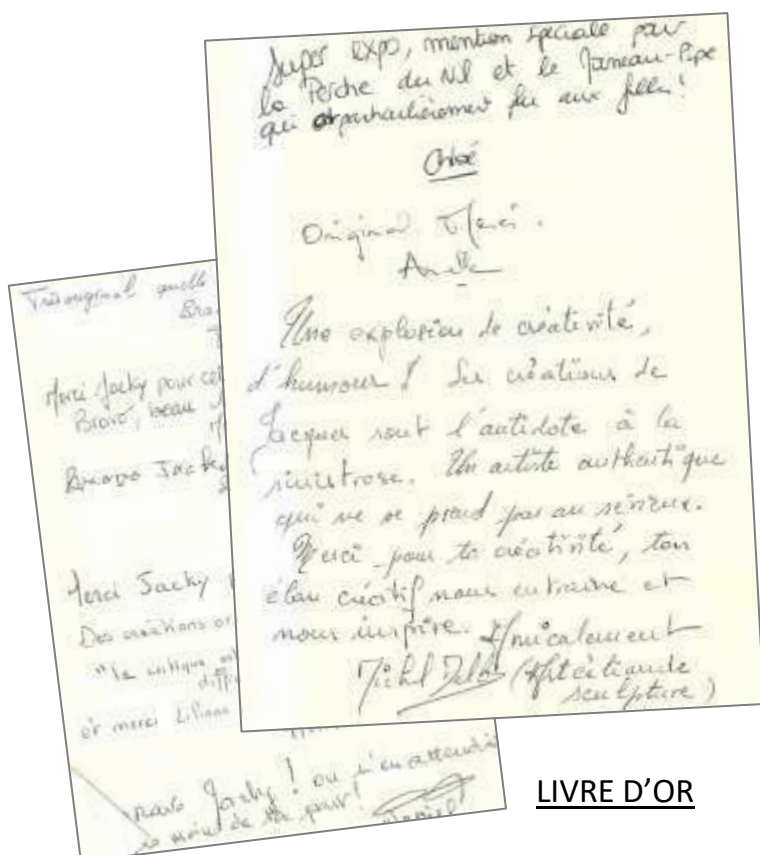 Super expo, mention spéciale pour
la Perche du Nil et le Jameau-Pipe
qui particulièrement plu aux filles !
Chloé
Original Merci.
Une explosion de créativité,
d'humour ! Les créations de
Jacques sont l'antidote à la
sinistrose. Un artiste authentique
qui ne se prend pas au sérieux.
Merci pour ta créativité, ton
élan créatif nous entraine et
nous inspire. Amicalement
Michel (
sculpture)
Très original quelle
Merci Jacky pour
Bravo, beau
Bravo Jacky
Merci Jacky
Des créations
"la critique
et merci Liliane
Jacky ! on
de ta part !
Daniel
LIVRE D'OR